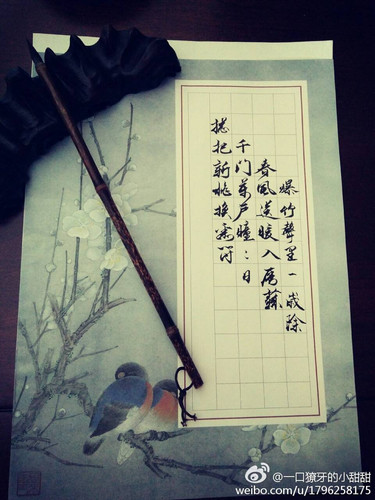 爆竹聲里一歲除
春風送暖入屠蘇
千门萬户曈:日
摠把新桃换舊符
@一口獠牙的小甜甜
weibo.com/u/1796258175